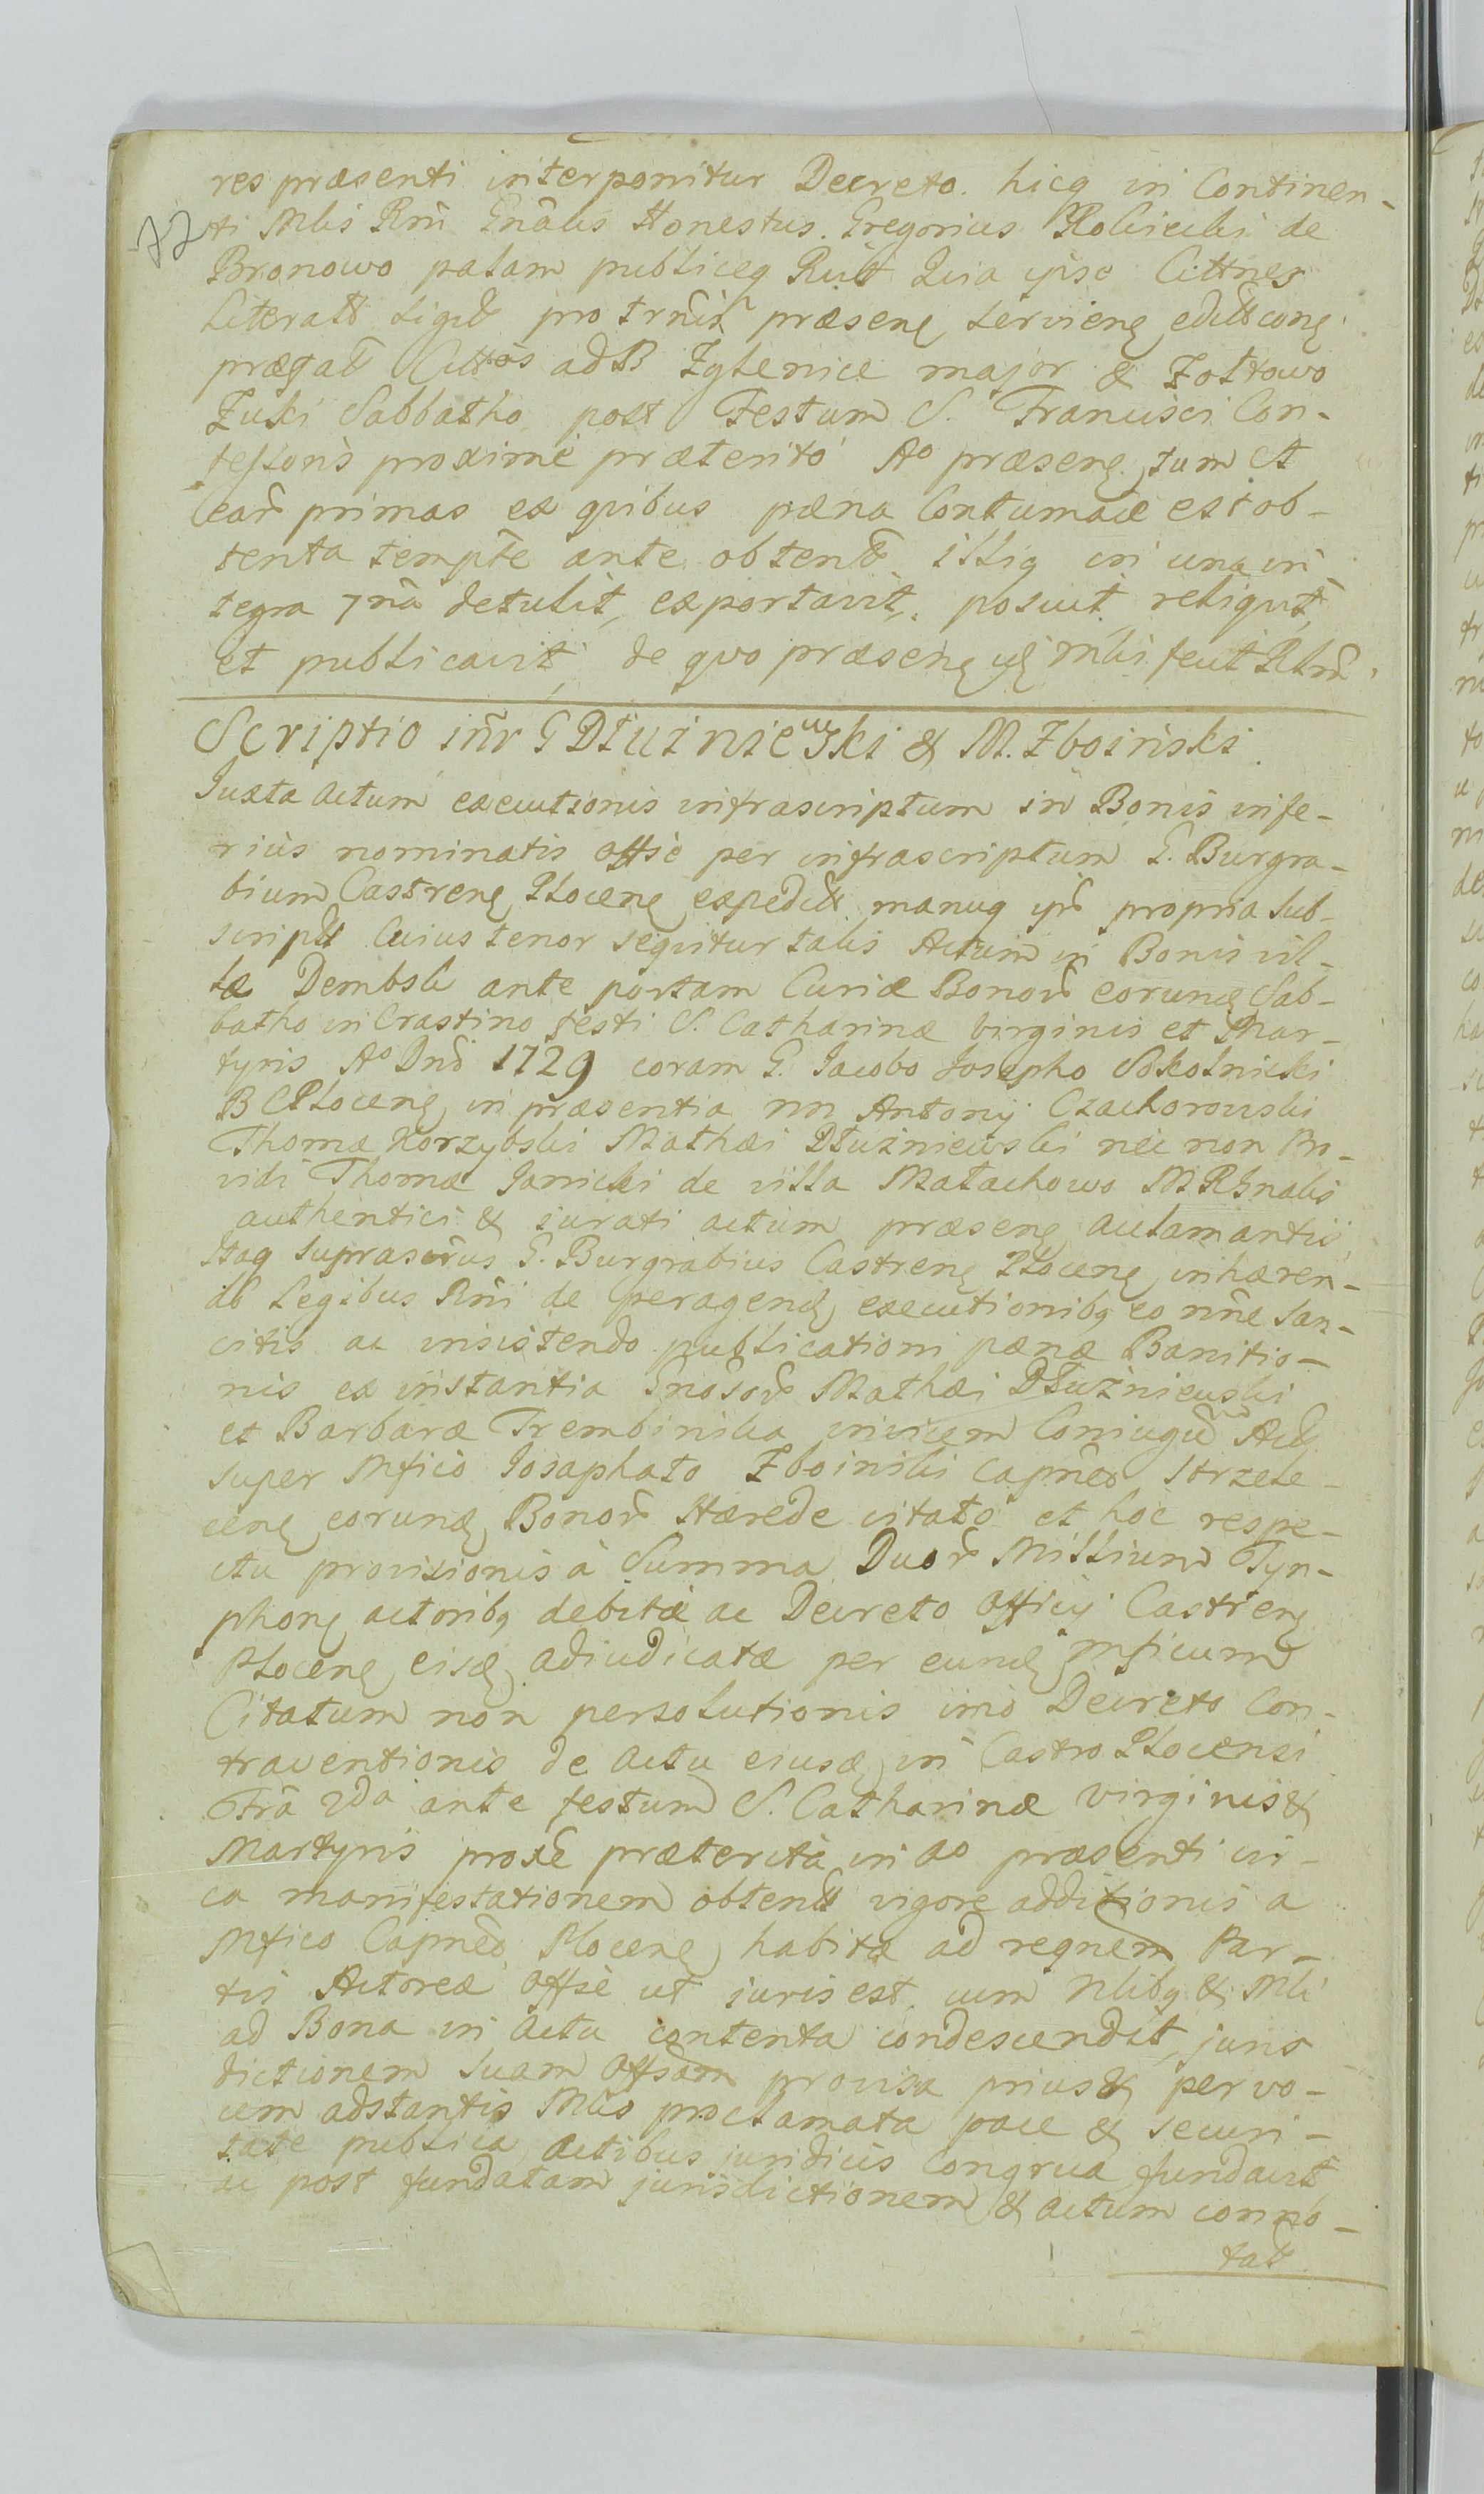 res præsenti interponitur Decreto. hicq in Continen-
77
ti Mlis Rni Gnalis Honestus. Gregorius de
Bronowo palam publiceq Rłt Quia ipse Littnes
Literatt sigill pro trnis præsenę servienę
Littas ad B Zglenice major & Zołtowo
Zuki Sabbatho post Festum S. Francisci Con-
fessoris proxime præterito Ao præsenę tum et
ead primas ex quibus pæna Contumaciæ est ob-
tenta tempte ante obtent illiq in una in
tegra 7na detulit, exportavit, posuit, reliquit,
et publicavit, de quo præsenę Mlis fecit Rlnm.
Scriptio inr G Dłużniewski & M. Zboiński.
Juxta Actum executionis infrascriptum in Bonis infe-
rius nominatis offse per infrascriptum G. Burgra-
bium Castrenę Płocenę expedit manuq ipr propria sub-
script Cuius tenor sequitur talis Actum in Bonis vil-
læ Dembsk ante portam Curiæ Bonor eorundę Sab-
batho in Crastino festi S. Catharinæ virginis et Mar-
tyris Ao Dni 1729 coram G. Jacobo Josepho Sokolnicki
BCPłocenę in præsentia nn Antonij Czachorowski
Thomæ Korzybski Mathæi Dłużniewski nec non Pro-
vidi Thomæ Janicki de villa Małachowo MRGnalis
authentici & iurati actum præsenę
Itaq suprascrius G. Burgrabius Castrenę Płocenę inhæren-
do Legibus Rni de peragendę executionibq eo nne San-
citis ac insistendo publicationi pænæ Banitio-
nis ex instantia Gnosor Mathæi Dłużniewski
et Barbaræ Trembinska invicem Coniugum Actor
super Mfico Josaphato Zboinski Capneo Strzele-
cenę eorundę Bonor Hærede citato et hoc respe-
ctu provisionis à Summa Duor Millium Tyn-
phonę actoribq debitæ ac Decreto Officij Castrenę
Płocenę eisdę adiudicatæ per eundę Mficum
Citatum non persolutionis imo Decreto Con-
traventionis de Actu eiusdę in Castro Płocensi
Fria 2da ante festum S. Catharinæ virginis &
Martyris proxe præterita in ao præsenti cir-
ca manifestationem obtent vigore additionis a
Mfico Capneo Płocenę habitæ ad reqnem Par-
tis Actoreæ Offse ut iuris est, cum Nlibq & Mli
ad Bona in Actu contenta condescendit, juris
dictionem suam Offsam provisa prius & per vo-
cem adstantis Mlis proclamata pace & securi-
tate publica Actibus juridicis Congrua fundavit
ac post fundatam jurisdictionem & actum conno-
tat